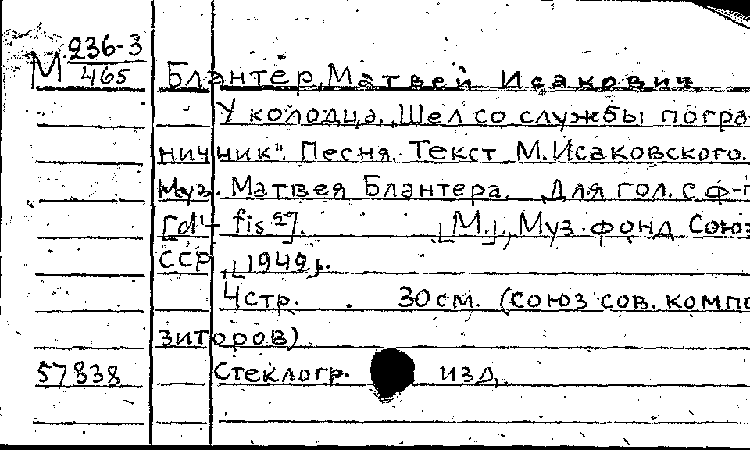 М 236-3
465
Блантер, Матвей Исакович
У колодца. „Шел со службы погра-
ничник". Песня. Текст М. Исаковского.
Муз. Матвея Блантера. Для гол. с ф-п
[d¹- fis²]. [М.], Муз. фонд Союз
ССР, [1949].
4 стр. 30 см. (Союз сов. компо
зиторов)
57838 Стеклогр. изд.